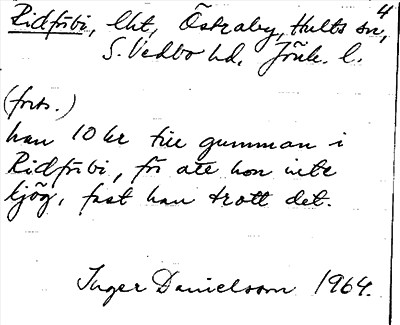 4
Ridfribi, lht, Östraby, Hults sn,
S. Vedbo hd. Jönk. l.
(forts.)
han 10 kr till gumman i
Ridfribi, för att hon inte
ljög, fast han trott det.
Inger Danielsson 1964.